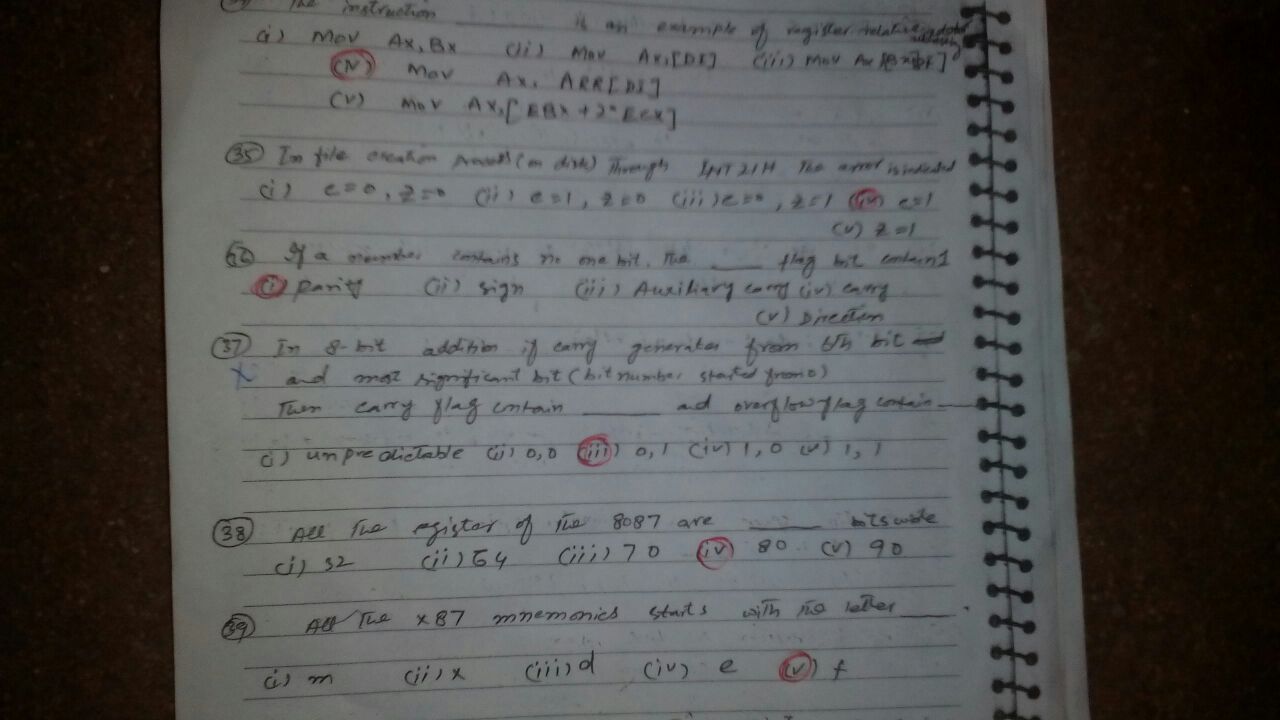 The instruction ______ is an example of register relative
(i) Mov Ax, Bx (ii) Mov Ax,[DI] (iii) Mov Ax
(iv) Mov Ax, ARR[DI]
(v) Mov Ax,[EBx + 2*Ecx]
(35) In file creation (on disk) Through INT 21H The error is indicated
(i) c=0, z=0 (ii) c=1, z=0 (iii) c=0, z=1 (iv) c=1
(v) z=1
If a number contains no one bit. The ____ flag bit contain 1
(i) parity (ii) sign (iii) Auxiliary carry (iv) carry
(v) Direction
(37) In 8-bit addition if carry generates from 6th bit
X and most significant bit (bit number started from 0)
Then carry flag contain ______ ad overflow flag contain ___
(i) unpredictable (ii) 0,0 (iii) 0,1 (iv) 1,0 (v) 1,1
(38) All The register of The 8087 are _____ bits wide
(i) 32 (ii) 64 (iii) 70 (iv) 80 (v) 90
(39) All The x87 mnemonics starts with The letter ____.
(i) m (ii) x (iii) d (iv) e (v) f